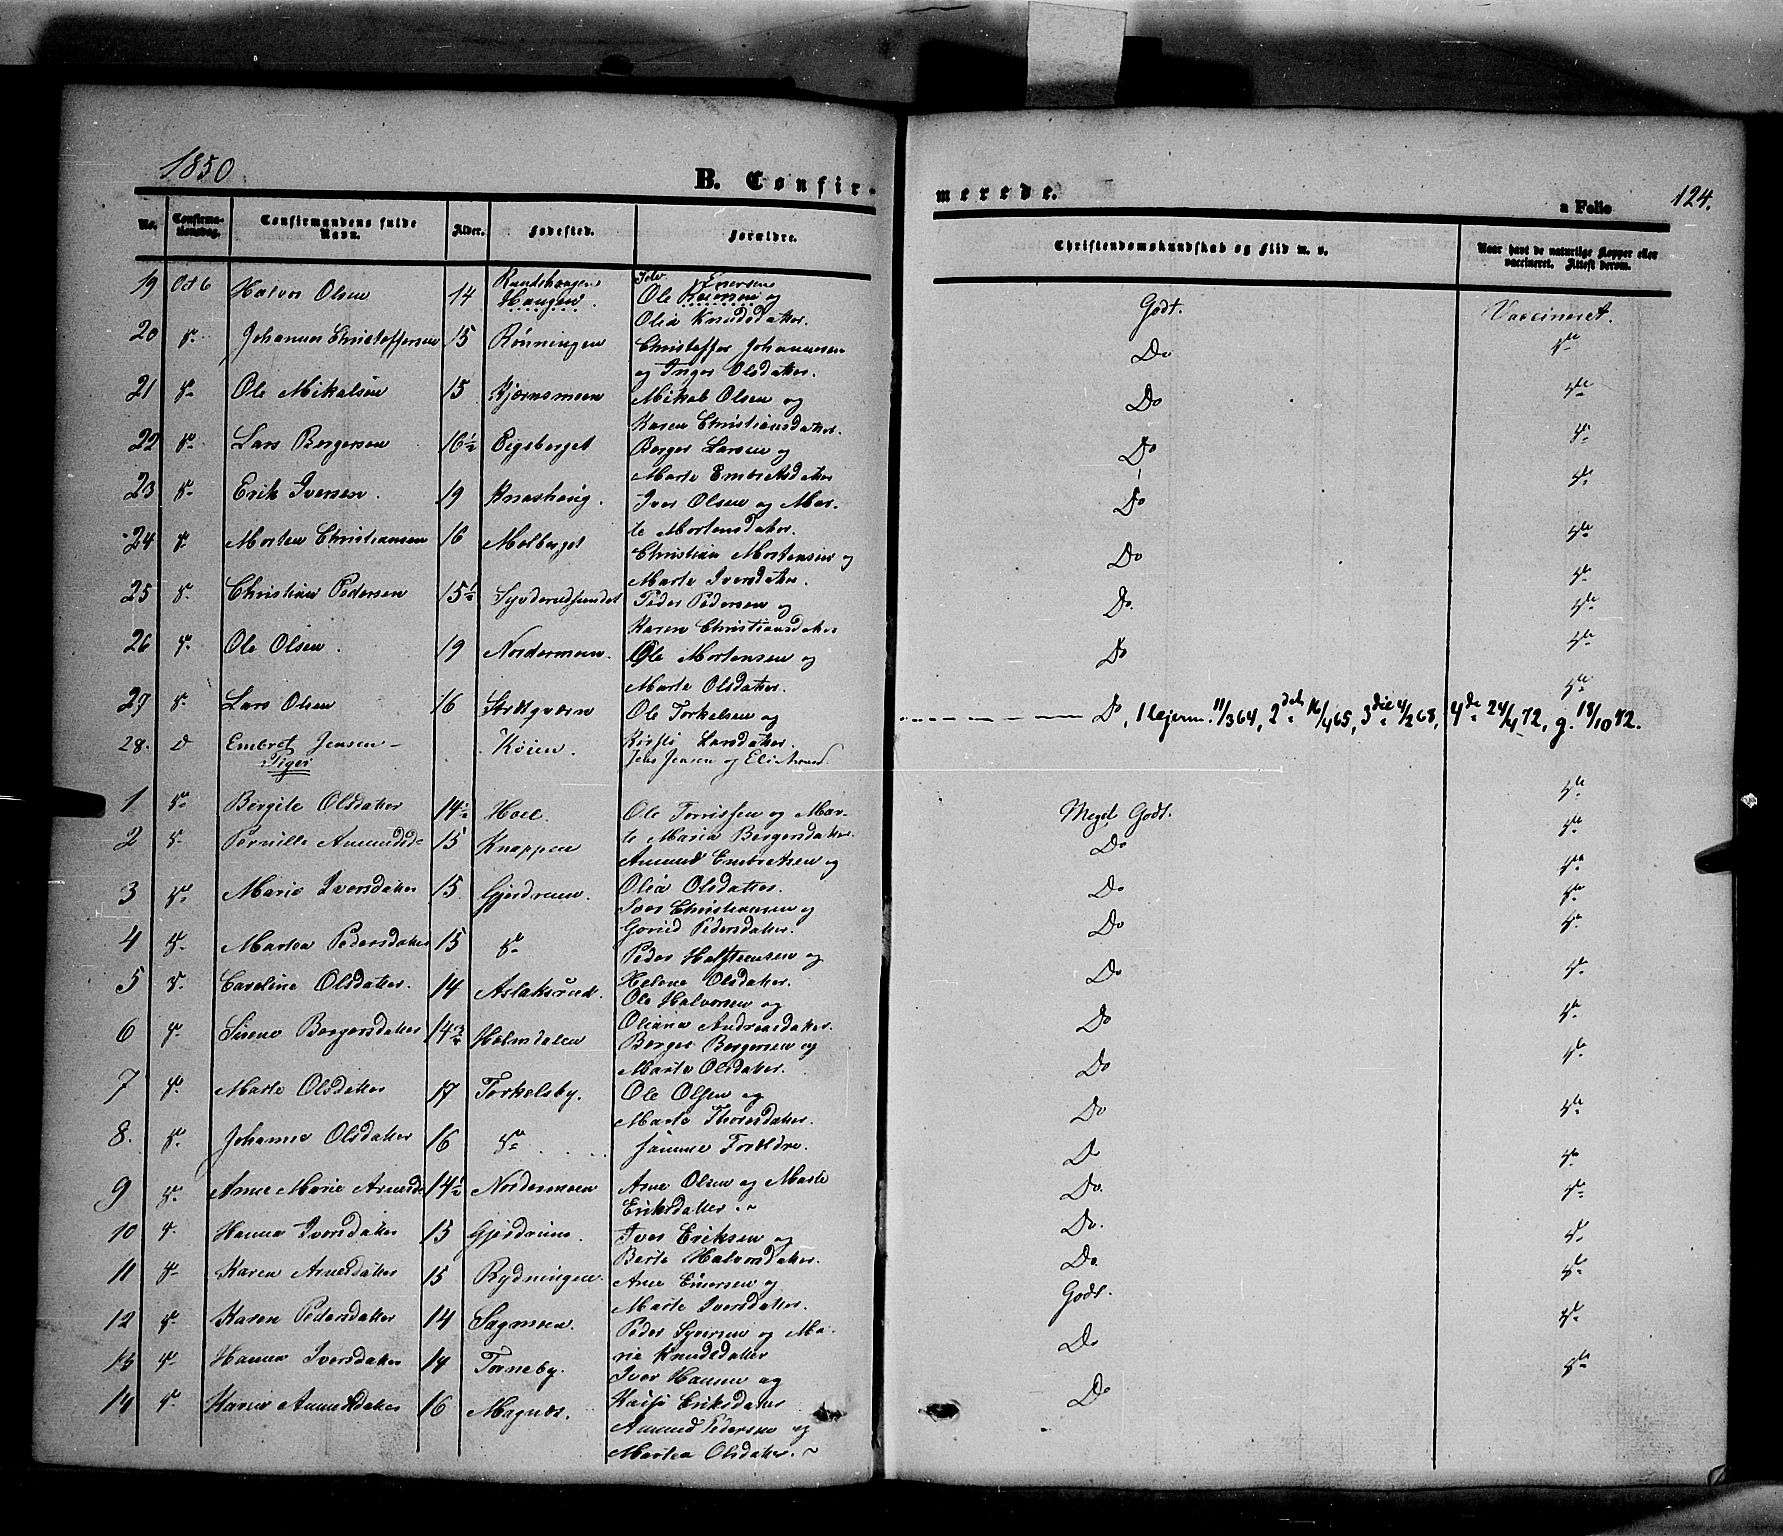 1850
B. Confir-
merede.
124.
a Folio
No. Confirma-tionsdag. Confirmandens fulde Navn. Alder. Fødested. Forældre. Christendomskundskab og Flid m. v. Naar havt de naturlige Kopper eller vaccineret. Attest derom.
19 Oct 6 Halvor Olsen 14 Haugen. Ole Enersen og Olia Knudsdatter. Godt. Vaccineret.
20 do Johannes Christoffersen 15 Rønningen Christoffer Johannesen og Inger Olsdatter. Do do
21 do Ole Mikalsen 15 Bjørnsmoen Mikal Olsen og Karen Christiansdatter. Do do
22 do Lars Borgersen 16½ Eigsberget Borger Larsen og Marte Embretsdatter Do do
23 do Erik Iversen. 19 Knashaug. Iver Olsen og Marte Mortensdatter. Do do
24 do Morten Christiansen 16 Molberget Christian Mortensen og Marte Iversdatter. Do do
25 do Christian Pedersen 15½ Peder Pedersen og Karen Christiansdatter Do. do
26 do Ole Olsen. 19 Nordermoen. Ole Mortensen og Marte Olsdatter. Do do
27 do Lars Olsen 16 Ole Torkelsen og Kirsti Larsdatter. Do, 1 Lejerm. 11/3 64, 2den 16/4 65, 3die 4/2 68, 4de 24/4 72, g. 18/10 72. do
28. d Embret Jensen - Køien. Jens Jensen og Eli
1 do Bergite Olsdatter 14½ Hoel. Ole Torrissen og Marte Maria Borgersdatter. Meget Godt. do
2 do Pernille Amundsd. 15 Knappen Amund Embretsen og Olia Olsdatter. Do do
3 do Marie Iversdatter 15 Gjerdrum. Iver Christiansen og Gorild Pedersdatter. Do do
4 do Martea Pedersdatter 15 do Peder Halfsteensen og Helene Olsdatter. Do do
5 do Caroline Olsdatter. 14 Aslaksrud. Ole Halvorsen og Oliana Andreasdatter. Do do
6 do Sirene Borgersdatter 14 Holmdalen Borger Borgersen og Marte Olsdatter. Do do
7 do Marte Olsdatter 17 Torkelsby. Ole Olsen og Marte Thoresdatter. Do do
8. do Johanne Olsdatter 16 do samme Forældre. Do do
9 do Anne Marie Arnesd. 14½ Nordermoen Arne Olsen og Marte Eriksdatter. Do do
10 do Hanna Iversdatter 15 Gjerdrum. Iver Eriksen og Berte Halvorsdatter. Do. do
11 do Karen Arnesdatter 15 Rydningen. Arne Einersen og Marte Iversdatter. Do. do
12 do Karen Pedersdatter 14 Sagmoen. Peder Syversen og Marie Knudsdatter Godt. do
13 do Hanna Iversdatter 14 Torneby. Iver Hansen og Kaisa Eriksdatter Do do
14 do Karen Amundsdatter 16 Magnæs. Amund Pedersen og Martea Olsdatter. Do do